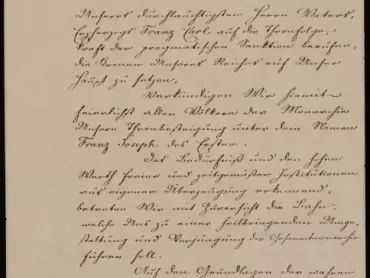 Unseres durchlauchtigsten Herrn Vaters,
Erzherzogs Franz Carl auf die Thronfolge,
kraft der pragmatischen Sanktion berufen,
die Kronen Unseres Reiches auf Unser
Haupt zu setzen,
Verkündigen Wir hiemit
feierlichst allen Völkern der Monarchie
Unsere Thronbesteigung unter dem Namen
Franz Joseph des Ersten.
Das Bedürfniß und den hohen
Werth freier und zeitgemäßer Institutionen
aus eigener Überzeugung erkennend,
betreten Wir mit Zuversicht die Bahn,
welche Uns zu einer heilbringenden Umge-
staltung und Verjüngung der Gesammtmonarchie
führen soll.
Auf den Grundlagen der wahren